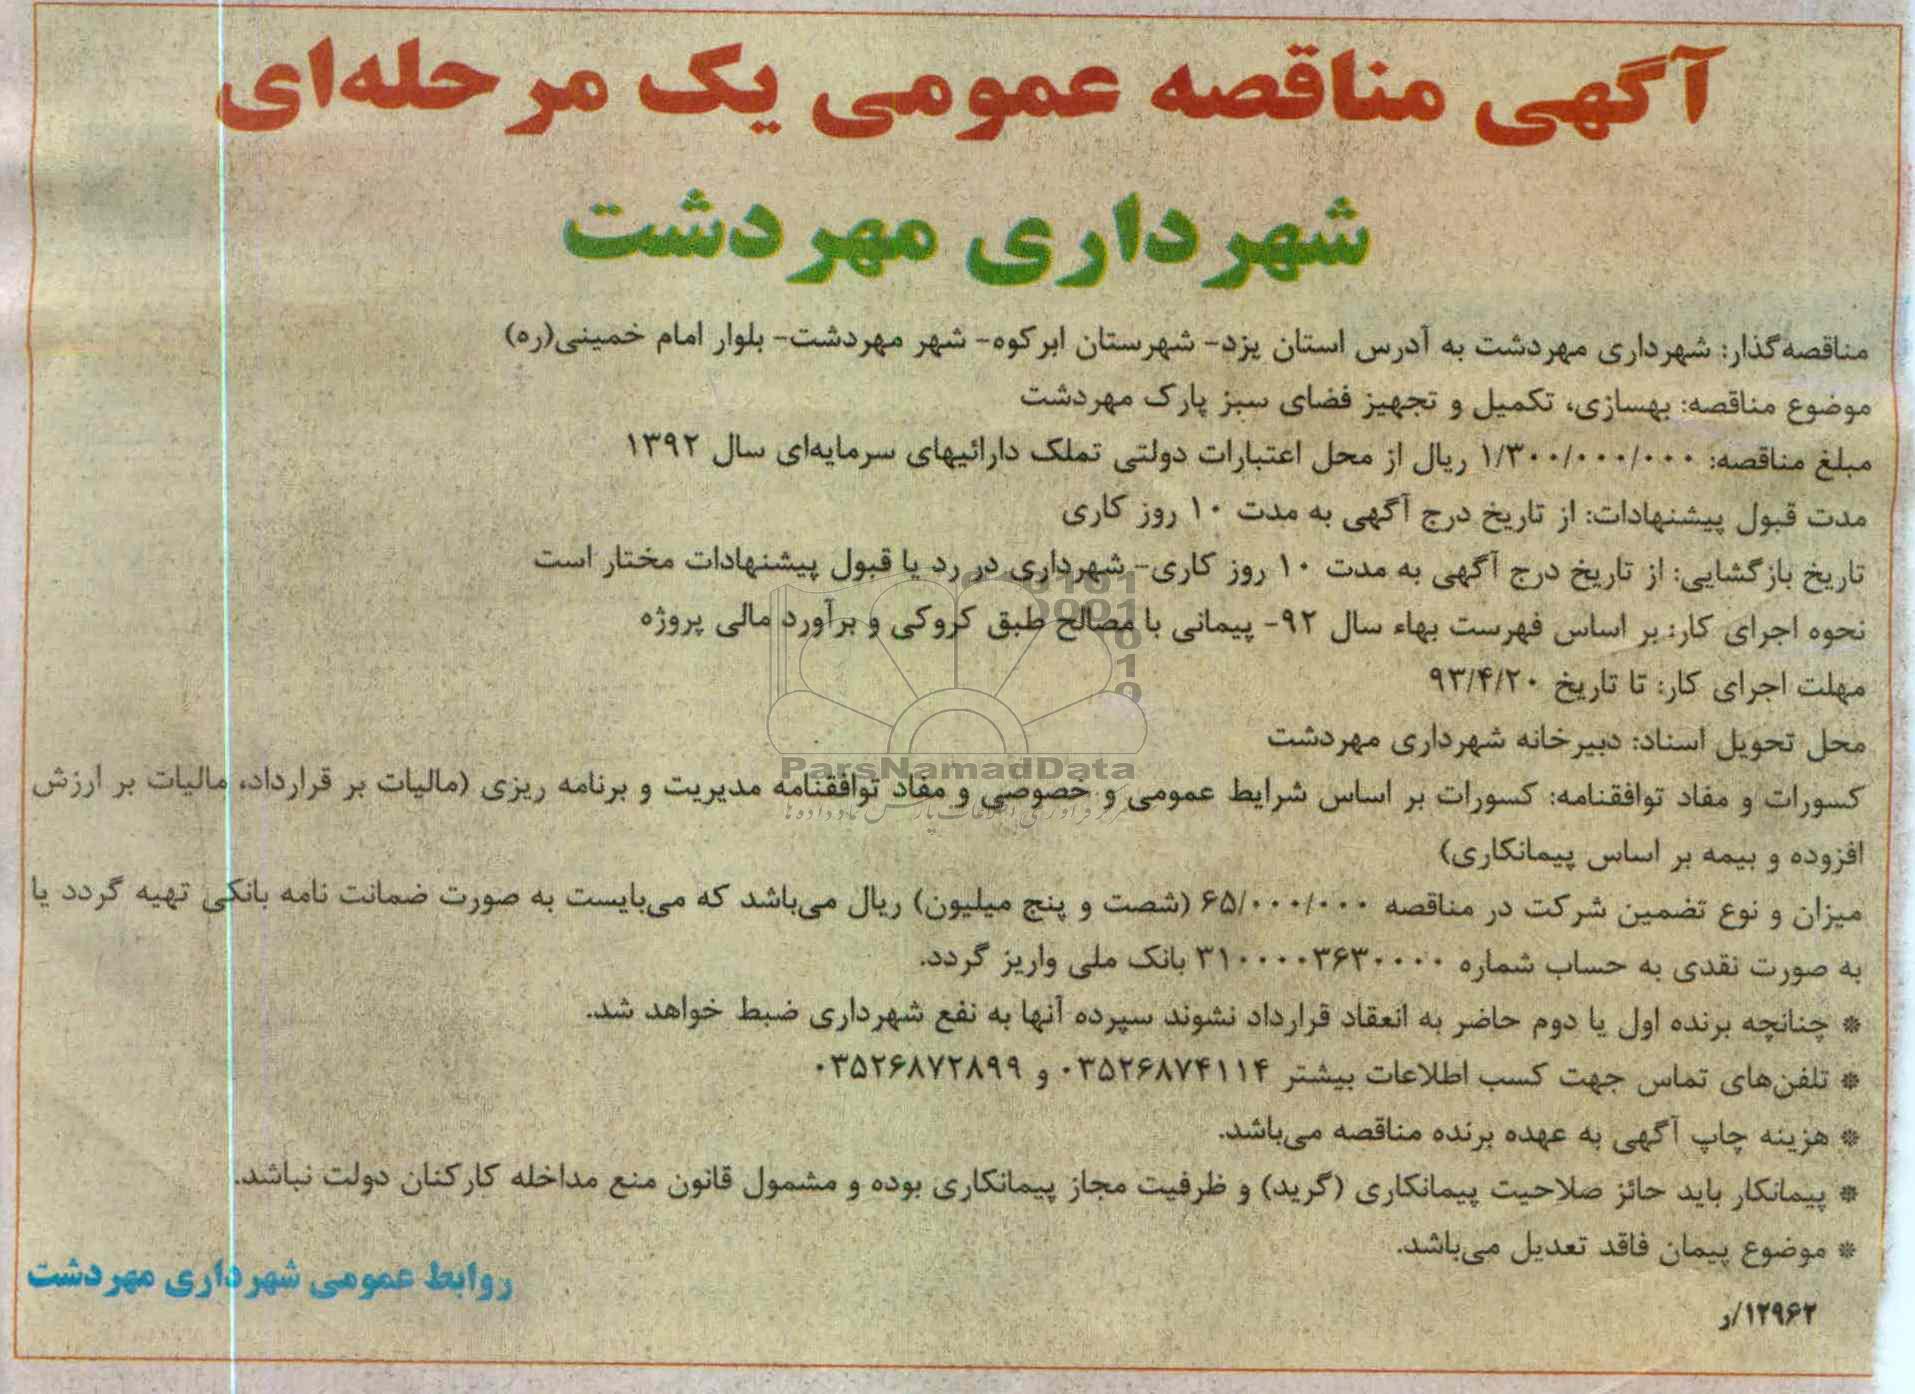 آگهی مناقصه عمومی یک مرحله‌ای
شهرداری مهردشت
مناقصه‌گذار: شهرداری مهردشت به آدرس استان یزد- شهرستان ابرکوه- شهر مهردشت- بلوار امام خمینی(ره)
موضوع مناقصه: بهسازی، تکمیل و تجهیز فضای سبز پارک مهردشت
مبلغ مناقصه: ۱/۳۰۰/۰۰۰/۰۰۰ ریال از محل اعتبارات دولتی تملک دارائیهای سرمایه‌ای سال ۱۳۹۲
مدت قبول پیشنهادات: از تاریخ درج آگهی به مدت ۱۰ روز کاری
تاریخ بازگشایی: از تاریخ درج آگهی به مدت ۱۰ روز کاری- شهرداری در رد یا قبول پیشنهادات مختار است
نحوه اجرای کار: بر اساس فهرست بهاء سال ۹۲- پیمانی با مصالح طبق کروکی و برآورد مالی پروژه
مهلت اجرای کار: تا تاریخ ۹۳/۴/۲۰
محل تحویل اسناد: دبیرخانه شهرداری مهردشت
ParsNamadData
کسورات و مفاد توافقنامه: کسورات بر اساس شرایط عمومی و خصوصی و مفاد توافقنامه مدیریت و برنامه ریزی (مالیات بر قرارداد، مالیات بر ارزش
افزوده و بیمه بر اساس پیمانکاری)
میزان و نوع تضمین شرکت در مناقصه ۶۵/۰۰۰/۰۰۰ (شصت و پنج میلیون) ریال می‌باشد که می‌بایست به صورت ضمانت نامه بانکی تهیه گردد یا
به صورت نقدی به حساب شماره ۳۱۰۰۰۰۳۶۳۰۰۰۰ بانک ملی واریز گردد.
* چنانچه برنده اول یا دوم حاضر به انعقاد قرارداد نشوند سپرده آنها به نفع شهرداری ضبط خواهد شد.
* تلفن‌های تماس جهت کسب اطلاعات بیشتر ۰۳۵۲۶۸۷۴۱۱۴ و ۰۳۵۲۶۸۷۲۸۹۹
* هزینه چاپ آگهی به عهده برنده مناقصه می‌باشد.
* پیمانکار باید حائز صلاحیت پیمانکاری (گرید) و ظرفیت مجاز پیمانکاری بوده و مشمول قانون منع مداخله کارکنان دولت نباشد.
* موضوع پیمان فاقد تعدیل می‌باشد.
روابط عمومی شهرداری مهردشت
۱۲۹۶۲/ر